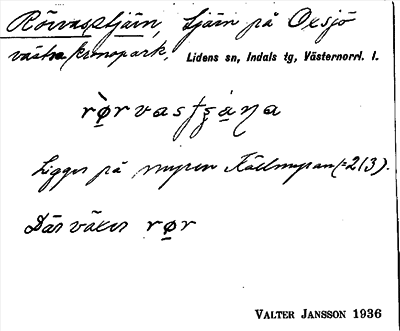 Rörvasstjärn, tjärn på Oxsjö
västra kronopark, Lidens sn, Indals tg, Västernorrl. l.
Ligger på myren Källmyran (=213).
Där växer rør
VALTER JANSSON 1936